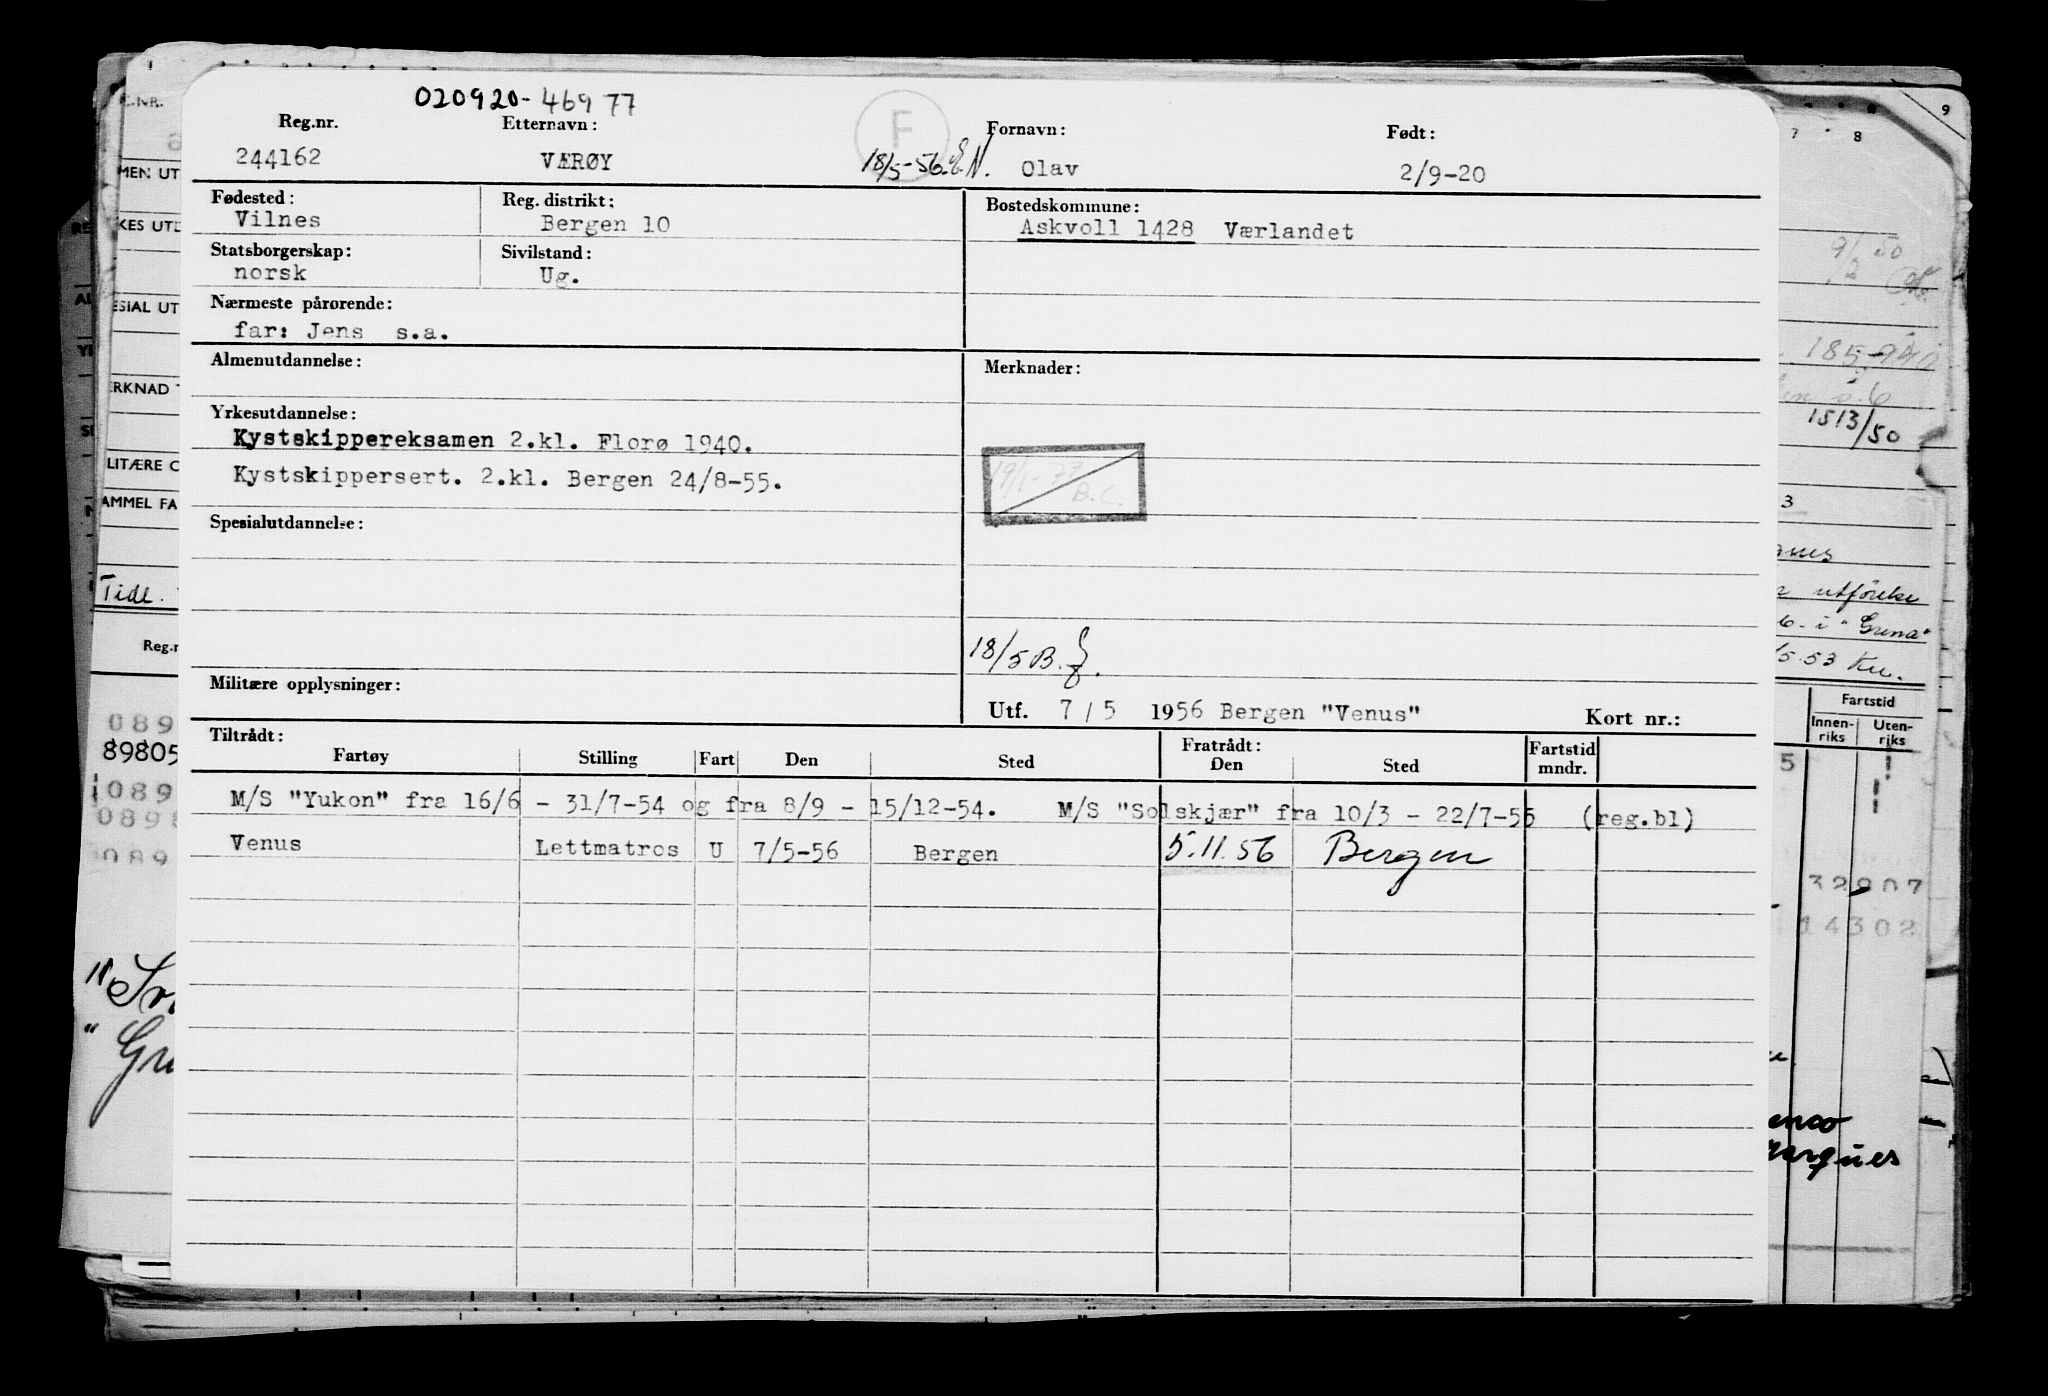 020920-46977
Reg.nr. Etternavn: F Fornavn: Født:
244162 VÆRØY 18/5-56. E.N. Olav 2/9-20
Fødested: Reg. distrikt: Bostedskommune:
Vilnes Bergen 10 Askvoll 1428 Værlandet
Statsborgerskap: Sivilstand:
norsk Ug.
Nærmeste pårørende:
far: Jens s.a.
Almenutdannelse: Merknader:
Yrkesutdannelse:
Kystskippereksamen 2.kl. Florø 1940.
Kystskippersert. 2.kl. Bergen 24/8-55.
19/1-77
B.C.
Spesialutdannelse:
18/5 B.
Militære opplysninger:
Utf. 7 / 5 1956 Bergen "Venus" Kort nr.:
Tiltrådt: Fratrådt:
Fartøy Stilling Fart Den Sted Den Sted Fartstid mndr.
M/S "Yukon" fra 16/6 - 31/7-54 og fra 8/9 - 15/12-54. M/S "Solskjær" fra 10/3 - 22/7-55 (reg.bl)
Venus Lettmatros U 7/5-56 Bergen 5.11.56 Bergen
MEN UT
KES UTD
ESIAL UT
ERKNAD
LITÆRE O
AMMEL FA
Tidl.
Reg.n
089
89805
089
089
089
"Gru
9
7 8
9/2 50
1513/50
3
utførelse
i "Grena"
5.53 Ku.
Fartstid
Innen-riks Uten-riks
5
32907
14302